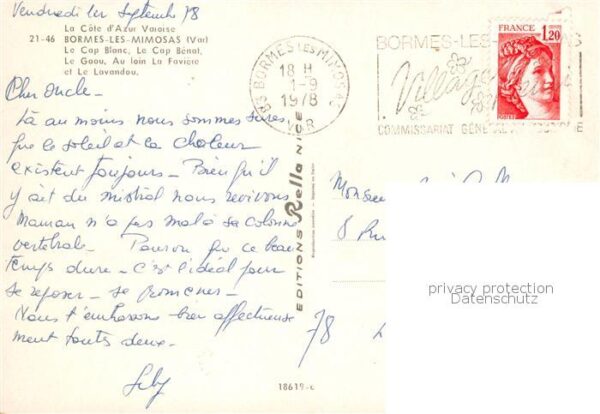 Vendredi 1er Septembre 78
La Côte d'Azur Varoise
21-46 BORMES-LES-MIMOSAS (Var)
Le Cap Blanc, Le Cap Bénat,
Le Gaou, Au loin La Favière
et Le Lavandou.
Cher Oncle -
Là au moins nous sommes sures
que le soleil et la chaleur
existent toujours - Bien qu'il
y ait du mistral nous revivons
Maman n'a pas mal à sa colonne
vertébrale - Pourvu que ce beau
temps dure - C'est l'idéal pour
se reposer - se promener -
Nous t'embrassons bien affectueuse
ment toutes deux -
83 BORMES LES MIMOSAS
18 H
1-9
1978
VAR
BORMES-LES-
Village
COMMISSARIAT GÉNÉRAL
FRANCE
1,20
EDITIONS Rella NICE
Monsieur
8 Rue
78
18619-c
privacy protection
Datenschutz